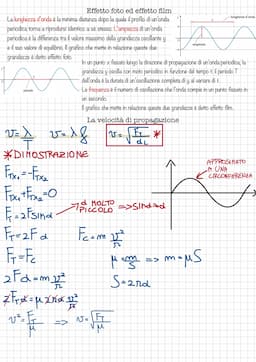 Effetto foto ed effetto film
La lunghezza d'onda è la minima distanza dopo la quale il profilo di un'onda
periodica torna a riprodursi identico a se stesso. L'ampiezza di un'onda
periodica è la differenza tra il valore massimo della grandezza oscillante y
e il suo valore di equilibrio. Il grafico che mette in relazione queste due
grandezze è detto effetto foto.
lunghezza d'onda
ampiezza
In un punto x fissato lungo la direzione di propagazione di un'onda periodica, la
grandezza y oscilla con moto periodico in funzione del tempo t. Il periodo T
dell'onda è la durata di un'oscillazione completa di y al variare di t.
La frequenza è il numero di oscillazione che l'onda compie in un punto fissato in
un secondo.
Il grafico che mette in relazione queste due grandezze è detto effetto film.
periodo
La velocità di propagazione
v=λ/T v=λf v=√(F_T/d_L) *
*DIMOSTRAZIONE
F_Tx1=-F_Tx2
F_Tx1+F_Tx2=0
F_T=2Fsinα → α MOLTO PICCOLO => sinα≈α
APPROSSIMATO A UNA CIRCONFERENZA
F_T=2Fα F_c=m v²/r
F_T=F_c μ=m/S => m=μS
2Fα=m v²/r S=2rα
2F_Tα=μ2rα v²/r
v²=F_T/μ => v=√(F_T/μ)